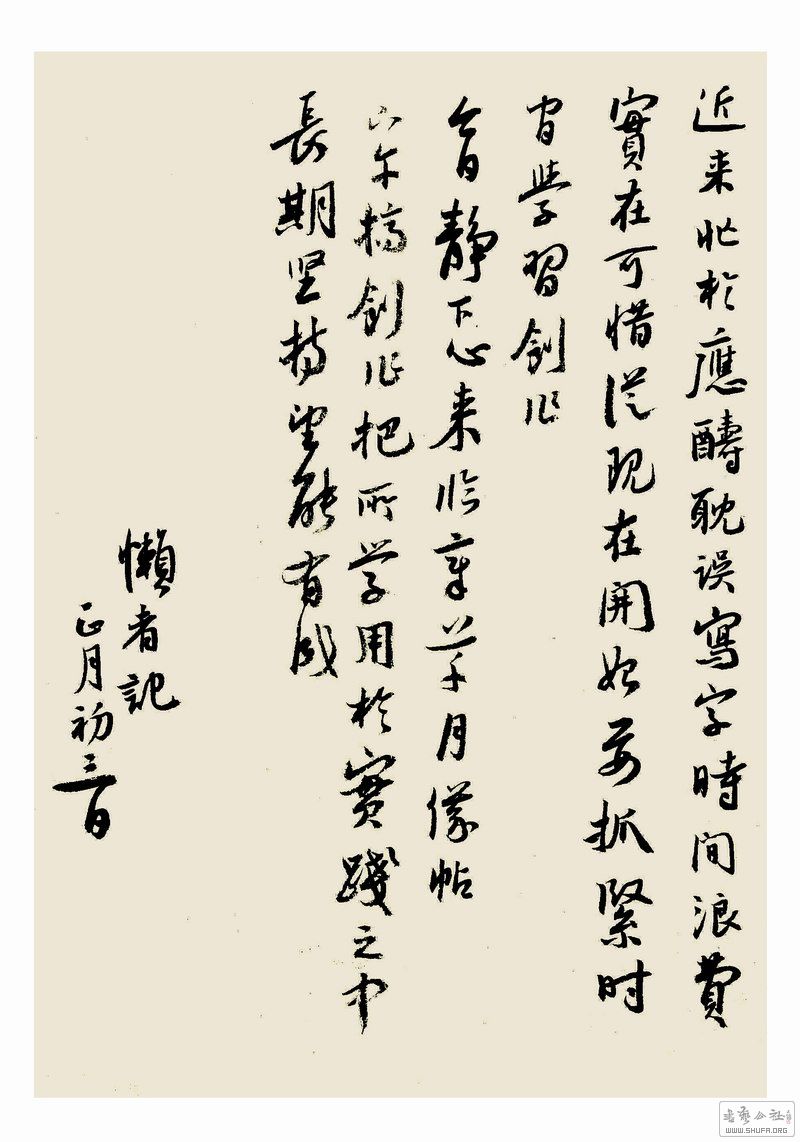 近来忙於應酬耽误寫字時间浪費
實在可惜從现在开始要抓緊时
间學習創作
今日静下心来临章草月儀帖
下午搞創作把所学用於實踐之中
長期坚持望能有成
懶者記
正月初三日
書藝公社
WWW.SHUFA.ORG